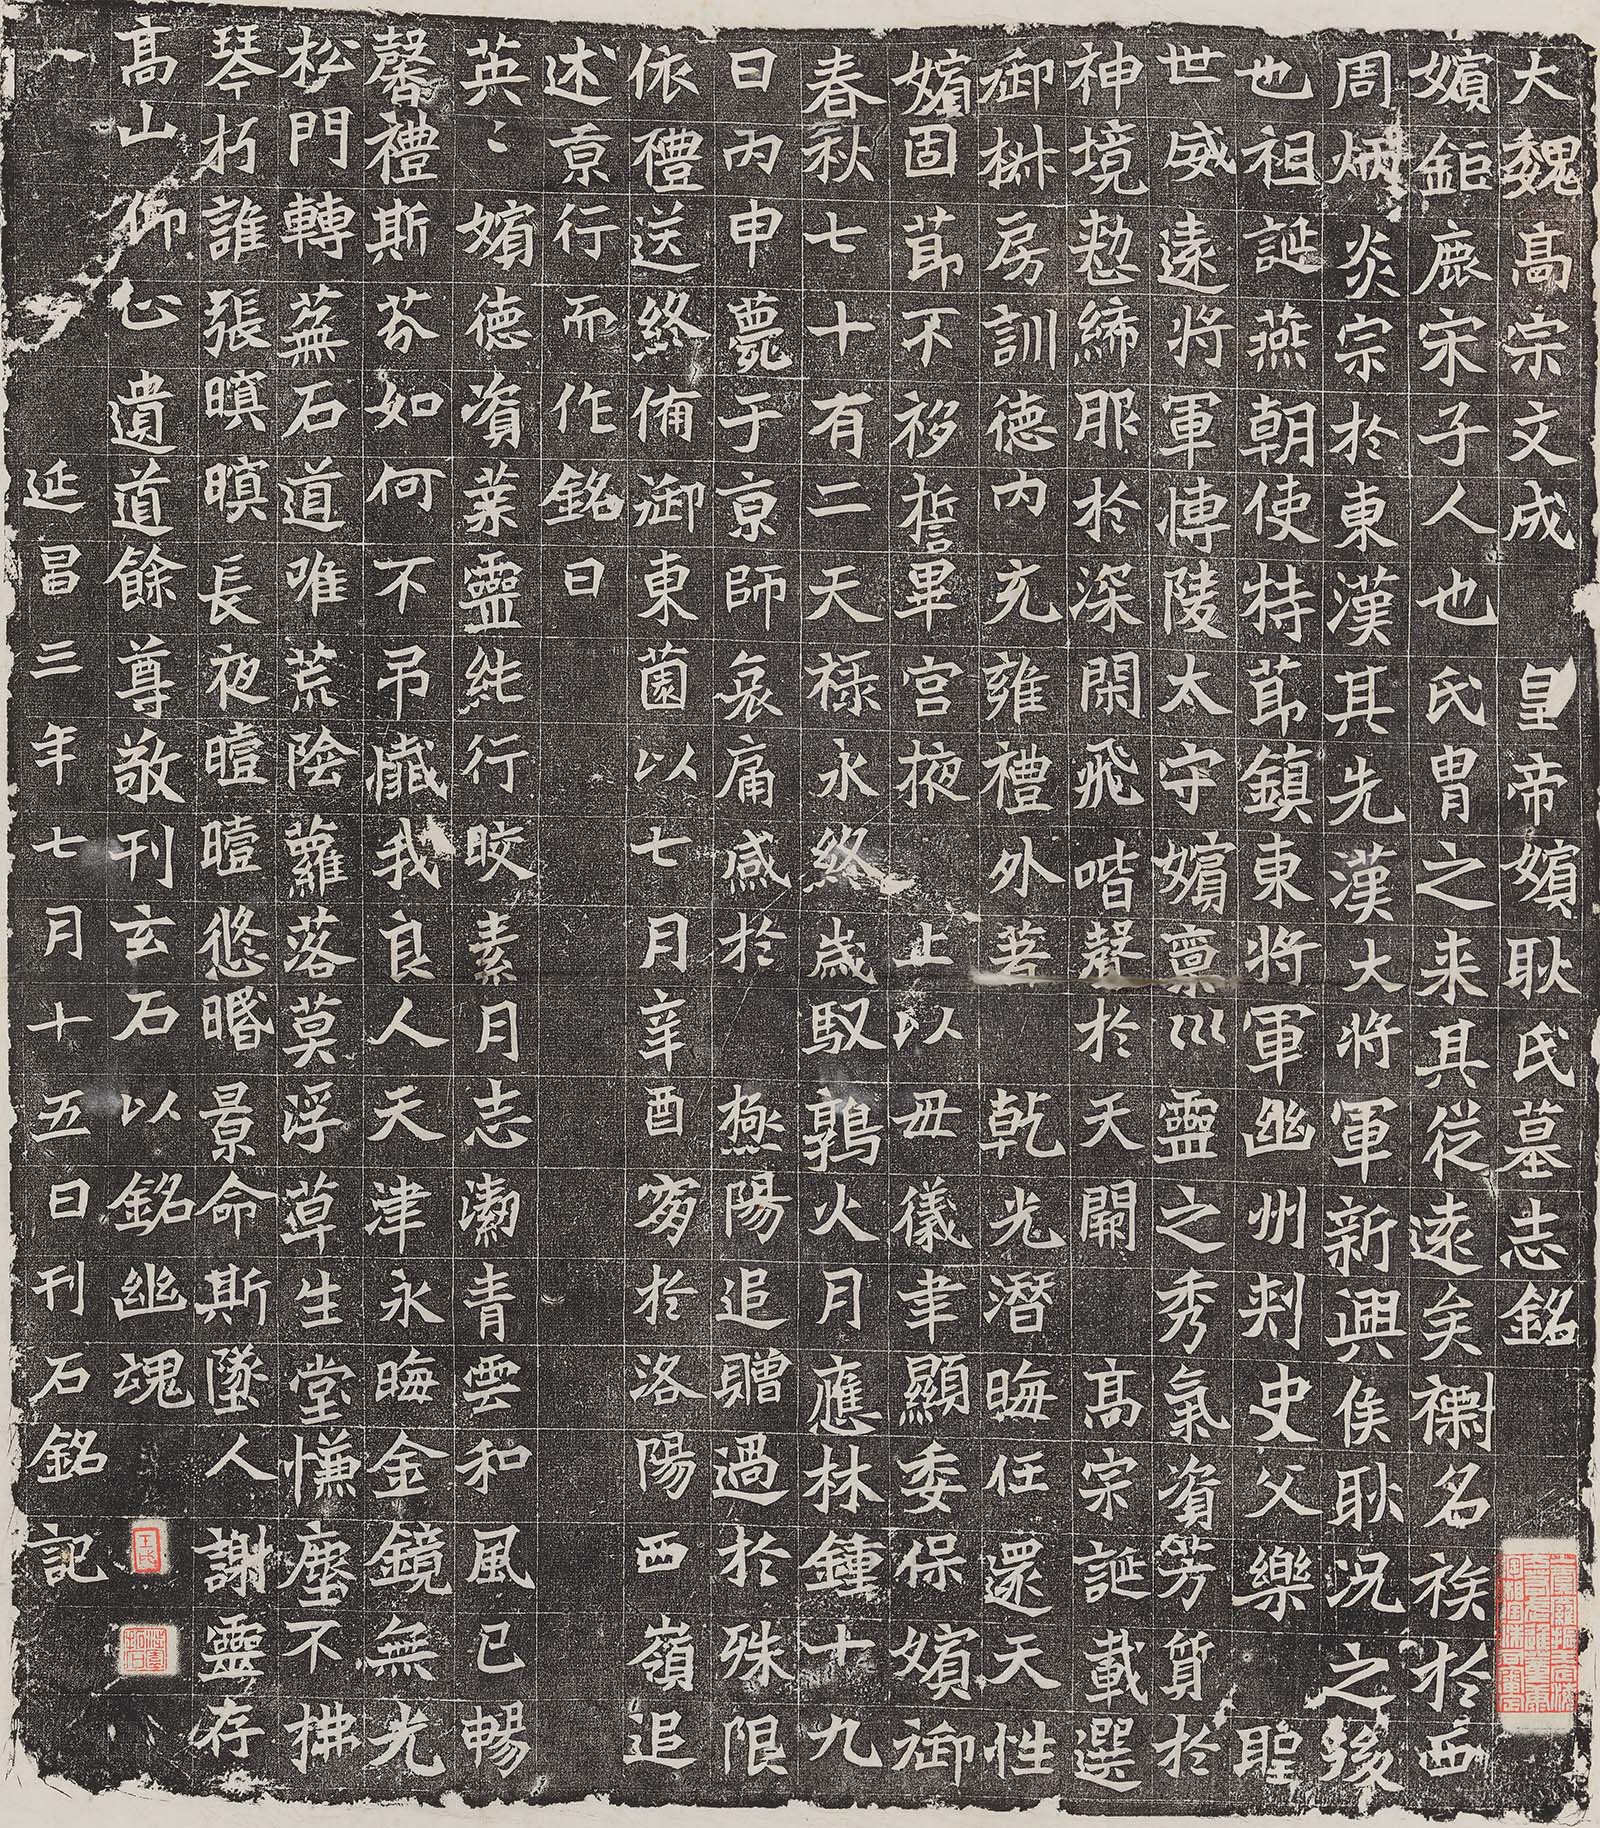 大魏高宗文成皇帝嬪耿氏墓志銘
嬪鉅鹿宋子人也氏胄之来其從遠矣㯤名族於西
周炳炎宗於東漢其先漢大將軍新興侯耿況之後
也祖誕燕朝使特節鎮東將軍幽州刺史父樂聖
世威遠將軍博陵太守嬪稟巛靈之秀氣資芳質於
神境愸締服於深閑飛喈聲於天闈高宗誕載選
御椒房訓德內充雍禮外著乾光潛晦任還天性
嬪固節不移誓畢宮掖止以毋儀聿顯委保嬪御
春秋七十有二天祿永終歲馭鶉火月應林鍾十九
日丙申薨于京師哀痛慼於極陽追贈過於殊限
依禮送終俻御東薗以七月辛酉穸於洛陽西嶺追
述景行而作銘曰
英〻嬪德資葉靈純行皎素月志瀨青雲和風已暢
馨禮斯芬如何不吊戯我良人天津永晦金鏡無光
松門轉蕪石道唯荒陰蘿落莫浮草生堂慊塵不拂
琴朽誰張暝暝長夜曀曀悠㬌景命斯墜人謝靈存
高山仰止遺道餘尊敬刊玄石以銘幽魂
延昌三年七月十五日刊石銘記